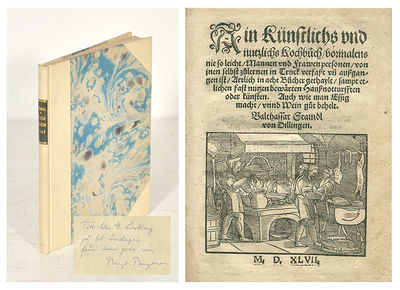 Till Sten G. Lindberg
på 60-årsdagen
från
Bengt Bengtsson
Ain Künstlichs vnd
nutzlichs Kochbůch/ vormalens
nie so leicht/ Mannen vnd Frawen personen/ von
jnen selbst zůlernen in Truck verfaßt vñ außgan-
gen ist/ Artlich in acht Bücher getheylt/ sampt et-
lichen fast nutzen bewärten Haußnotturfften
oder künsten. Auch wie man Essig
macht/ vnnd Wein gůt behelt.
Balthassar Staindl
von Dillingen.
M. D. XLVII.